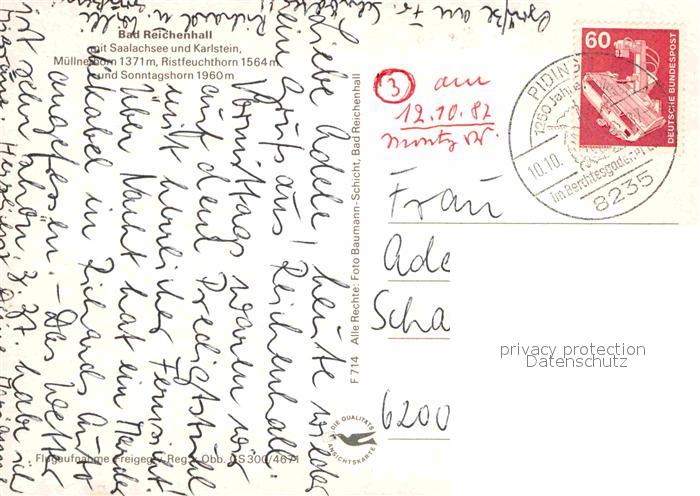 Bad Reichenhall
mit Saalachsee und Karlstein,
Müllnerhorn 1371m, Ristfeuchthorn 1564m
und Sonntagshorn 1960m
Liebe Adele, heute wieder
ein Gruß aus Reichenhall!
Vormittags waren wir
auf dem Predigtstuhl
mit herrlicher Fernsicht.
Über Nacht hat ein Marder
Kabel in Richards Auto
angefressen. - Das Wetter
ist sehr schön.
Herzliche
Richard u.
Grüße an
F 714 Alle Rechte: Foto Baumann-Schicht, Bad Reichenhall
3 am
12.10.87
60
DEUTSCHE BUNDESPOST
PIDING
1250 Jahre
10.10.
im Berchtesgadener
8235
Frau
Ade
Scha
6200
privacy protection
Datenschutz
DIE QUALITÄTS
ANSICHTSKARTE
Flugaufnahme Freigeg. v. Reg. v. Obb. GS300/4671